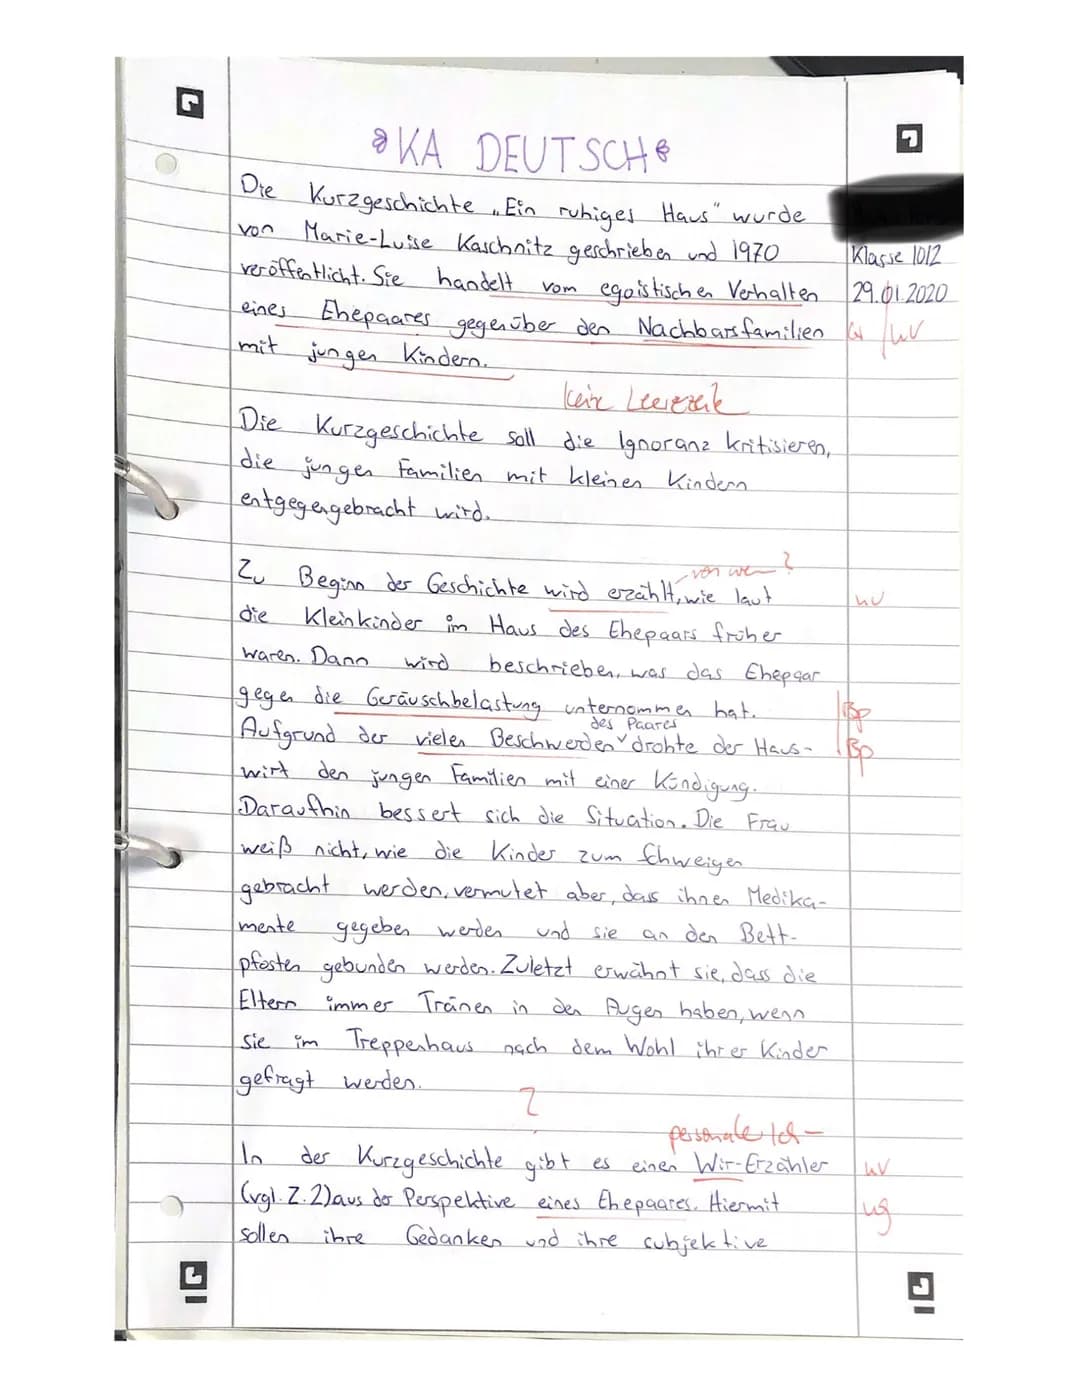 KA DEUTSCH
Die Kurzgeschichte „Ein ruhiges Haus" wurde
von Marie-Luise Kaschnitz geschrieben und 1970
Klasse 10/2
veröffentlicht. Sie handelt vom egoistischen Verhalten
29.01.2020
eines Ehepaares gegenüber den Nachbarsfamilien
mit jungen Kindern.
keine Leerzeile
Die Kurzgeschichte soll die Ignoranz kritisieren,
die jungen Familien mit kleinen Kindern
entgegengebracht wird.
von wem?
Zu Beginn der Geschichte wird erzählt, wie laut
die Kleinkinder im Haus des Ehepaars früher
waren. Dann wird beschrieben, was das Ehepaar
gegen die Geräuschbelastung unternommen hat.
Bp
des Paares
Aufgrund der vielen Beschwerden drohte der Haus-
Bp
wirt den jungen Familien mit einer Kündigung.
Daraufhin bessert sich die Situation. Die Frau
weiß nicht, wie die Kinder zum Schweigen
gebracht werden, vermutet aber, dass ihnen Medika-
mente gegeben werden und sie an den Bett-
pfosten gebunden werden. Zuletzt erwähnt sie, dass die
Eltern immer Tränen in den Augen haben, wenn
sie im Treppenhaus nach dem Wohl ihrer Kinder
gefragt werden.
?
personale Ich-
In der Kurzgeschichte gibt es einen Wir-Erzähler
(vgl. Z. 2) aus der Perspektive eines Ehepaares. Hiermit
ug
sollen ihre Gedanken und ihre subjektive